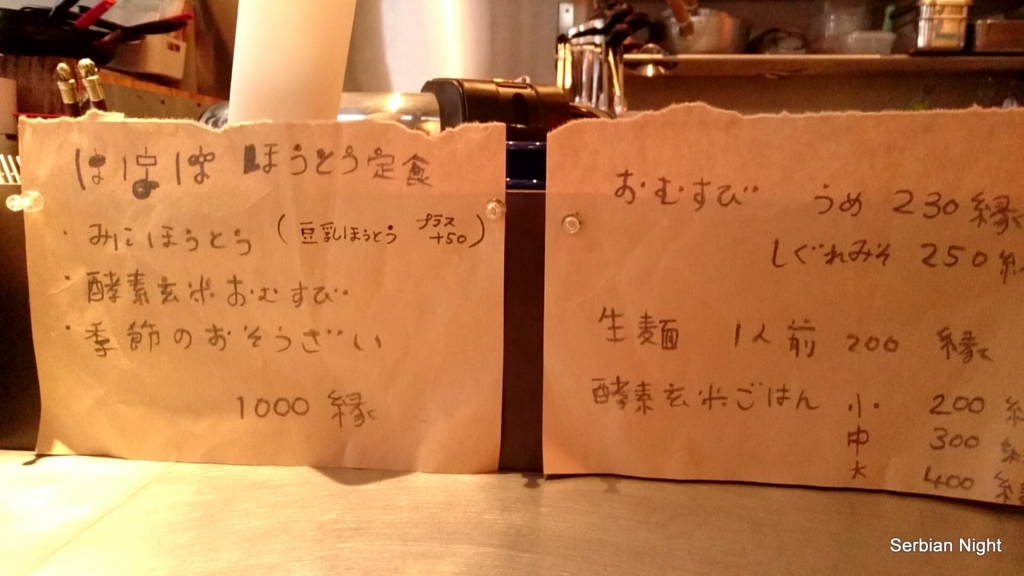 ほうとう定食
・みにほうとう (豆乳ほうとう プラス +50)
・酵素玄米おむすび
・季節のおそうざい
1000 縁
おむすび うめ 230 縁
しぐれみそ 250 縁
生麺 1人前 200 縁
酵素玄米ごはん 小 200 縁
中 300 縁
大 400 縁
Serbian Night